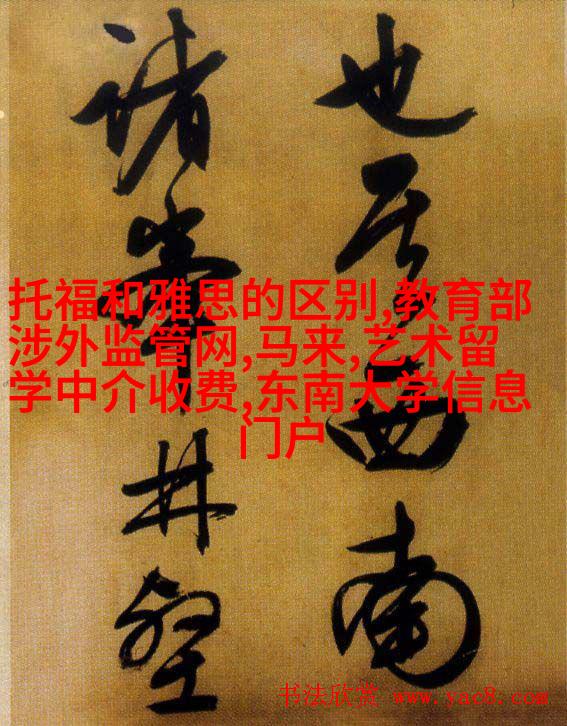 也 其西南
诸峰林壑
托福和雅思的区别,教育部
涉外监管网,马来,艺术留
学中介收费,东南大学信息
门户
书法欣赏 www.yac8.com